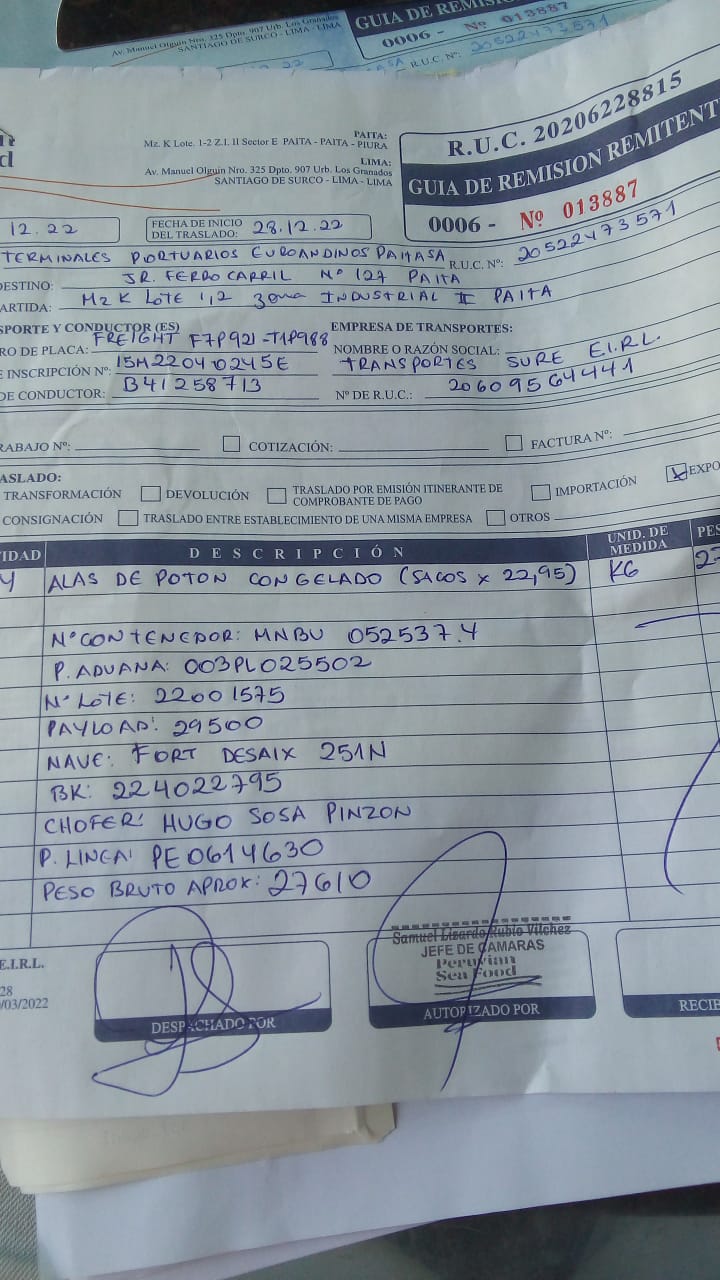 Av. Manuel Olguin Nro. 325 Dpto. 907 Urb. Los Granados
SANTIAGO DE SURCO - LIMA - LIMA
GUIA DE REMIS
0006 - Nº 013887
R.U.C. Nº: 20522473571
PAITA:
Mz. K Lote. 1-2 Z.I. II Sector E PAITA - PAITA - PIURA
LIMA:
Av. Manuel Olguin Nro. 325 Dpto. 907 Urb. Los Granados
SANTIAGO DE SURCO - LIMA - LIMA
R.U.C. 20206228815
GUIA DE REMISION REMITENT
0006 - Nº 013887
12.22
FECHA DE INICIO DEL TRASLADO: 28.12.22
TERMINALES PORTUARIOS EUROANDINOS PAITASA R.U.C. Nº: 20522473571
DESTINO: JR. FERRO CARRIL Nº 127 PAITA
ARTIDA: MZ K LOTE 1,2 ZONA INDUSTRIAL II PAITA
SPORTE Y CONDUCTOR (ES)
EMPRESA DE TRANSPORTES:
RO DE PLACA: FREIGHT F7P921-T1P988
NOMBRE O RAZÓN SOCIAL: TRANSPORTES SURE E.I.R.L.
E INSCRIPCIÓN Nº: 15M22040245E
DE CONDUCTOR: B41258713
Nº DE R.U.C.: 20609564441
RABAJO Nº:
COTIZACIÓN:
FACTURA Nº:
ASLADO:
TRANSFORMACIÓN
DEVOLUCIÓN
TRASLADO POR EMISIÓN ITINERANTE DE COMPROBANTE DE PAGO
IMPORTACIÓN
EXPO
CONSIGNACIÓN
TRASLADO ENTRE ESTABLECIMIENTO DE UNA MISMA EMPRESA
OTROS
IDAD DESCRIPCIÓN UNID. DE MEDIDA PES
4 ALAS DE POTON CONGELADO (SACOS x 22,95) KG 27
Nº CONTENEDOR: MNBU 052537.4
P. ADUANA: 003PL025502
Nº LOTE: 22001575
PAYLOAD: 29500
NAVE: FORT DESAIX 251N
BK: 224022795
CHOFER: HUGO SOSA PINZON
P. LINEA: PE0614630
PESO BRUTO APROX: 27610
E.I.R.L.
28
/03/2022
Samuel Lizardo Rubio Vilchez
JEFE DE CAMARAS
Peruvian
Sea Food
DESPACHADO POR
AUTORIZADO POR
RECIB